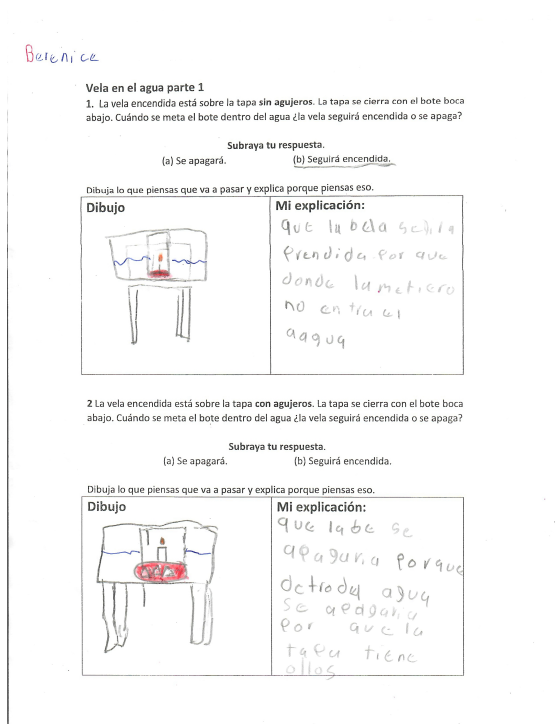 Berenice
Vela en el agua parte 1
1. La vela encendida está sobre la tapa sin agujeros. La tapa se cierra con el bote boca
abajo. Cuándo se meta el bote dentro del agua ¿la vela seguirá encendida o se apaga?
Subraya tu respuesta.
(a) Se apagará. (b) Seguirá encendida.
Dibuja lo que piensas que va a pasar y explica porque piensas eso.
Dibujo
Mi explicación:
que la bela
prendida por que
donde la metiero
no entra el
aagua
2 La vela encendida está sobre la tapa con agujeros. La tapa se cierra con el bote boca
abajo. Cuándo se meta el bote dentro del agua ¿la vela seguirá encendida o se apaga?
Subraya tu respuesta.
(a) Se apagará. (b) Seguirá encendida.
Dibuja lo que piensas que va a pasar y explica porque piensas eso.
Dibujo
Mi explicación:
que la be se
apagara porque
detro del agua
se apagara
por que la
tapa tiene
ollos